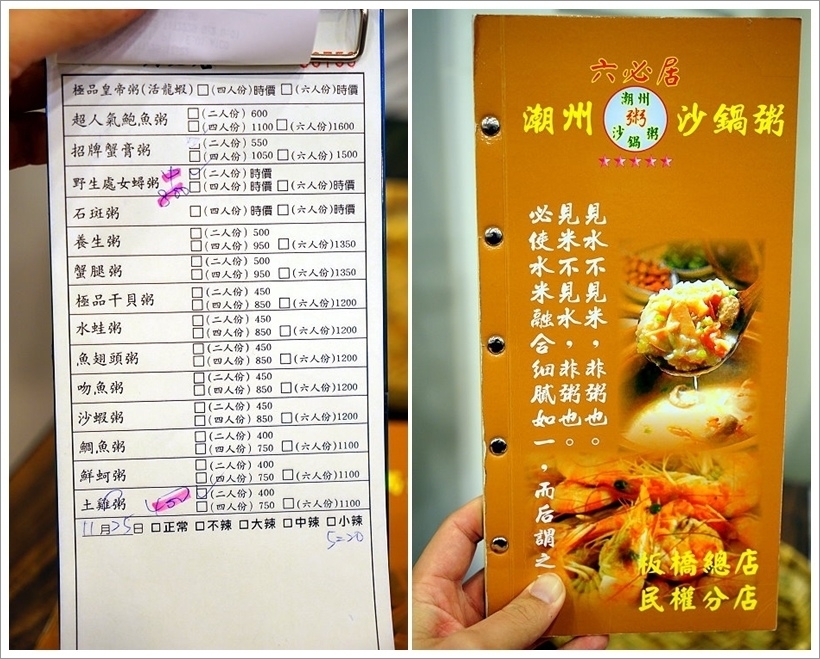 極品皇帝粥(活龍蝦) □(四人份)時價 □(六人份)時價
超人氣鮑魚粥 □(二人份) 600
□(四人份) 1100 □(六人份)1600
招牌蟹膏粥 □(二人份) 550
□(四人份) 1050 □(六人份) 1500
野生處女蟳粥 □(二人份)時價
□(四人份)時價 □(六人份)時價
石斑粥 □(四人份)時價 □(六人份)時價
養生粥 □(二人份) 500
□(四人份) 950 □(六人份)1350
蟹腿粥 □(二人份) 500
□(四人份) 950 □(六人份)1350
極品干貝粥 □(二人份) 450
□(四人份) 850 □(六人份)1200
水蛙粥 □(二人份) 450
□(四人份) 850 □(六人份)1200
魚翅頭粥 □(二人份) 450
□(四人份) 850 □(六人份)1200
吻魚粥 □(二人份) 450
□(四人份) 850 □(六人份)1200
沙蝦粥 □(二人份) 450
□(四人份) 850 □(六人份)1200
鯛魚粥 □(二人份) 400
□(四人份) 750 □(六人份)1100
鮮蚵粥 □(二人份) 400
□(四人份) 750 □(六人份)1100
土雞粥 400 □(二人份) 400
□(四人份) 750 □(六人份)1100
11月25日 □正常 □不辣 □大辣 □中辣 □小辣
5=20
六必居
潮州 沙鍋粥
潮州
粥
沙鍋粥
見水不見米，非粥也。
見米不見水，非粥也。
必使水米融合細膩如一，而后謂之
板橋總店
民權分店